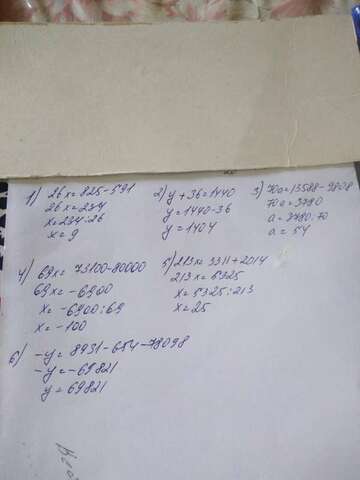 1) 26x = 825 - 591
26x = 234
x = 234 : 26
x = 9
2) y + 36 = 1440
y = 1440 - 36
y = 1404
3) 70a = 13588 - 9808
70a = 3780
a = 3780 : 70
a = 54
4) 69x = 73100 - 80000
69x = -6900
x = -6900 : 69
x = -100
5) 213x = 3311 + 2014
213x = 5325
x = 5325 : 213
x = 25
6) -y = 8931 - 654 - 78098
-y = -69821
y = 69821